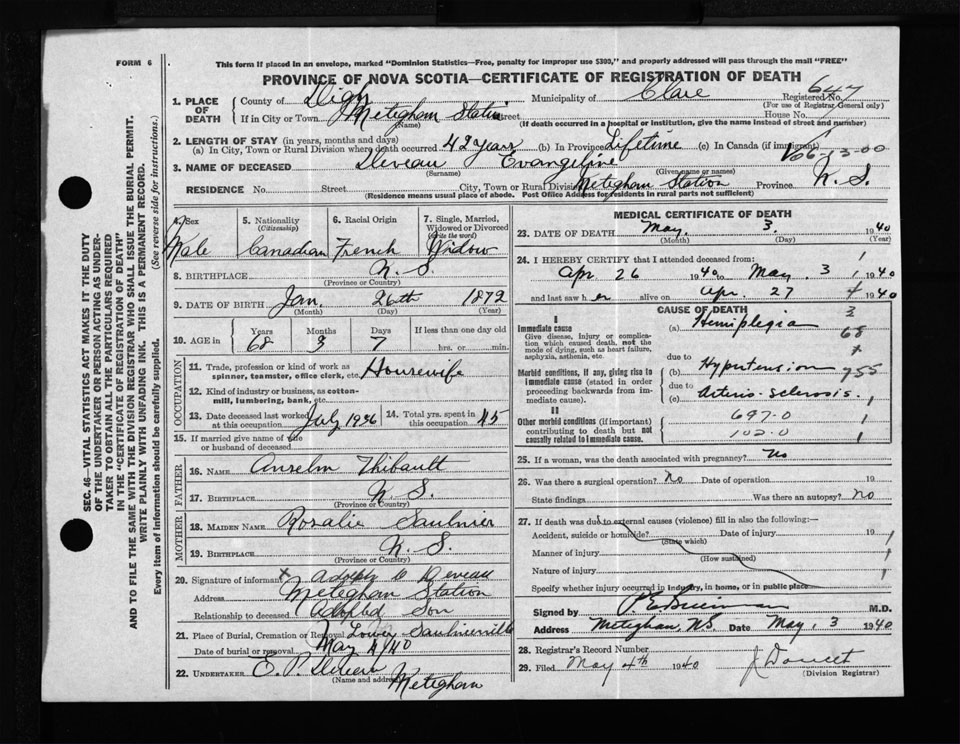 FORM 6
This form if placed in an envelope, marked "Dominion Statistics—Free, penalty for improper use $300," and properly addressed will pass through the mail "FREE"
PROVINCE OF NOVA SCOTIA—CERTIFICATE OF REGISTRATION OF DEATH
647
1. PLACE OF DEATH County of Digby Municipality of Clare Registered No.
(For use of Registrar General only)
If in City or Town Meteghan Station Street House No.
(Name) (If death occurred in a hospital or institution, give the name instead of street and number)
2. LENGTH OF STAY (in years, months and days)
(a) In City, Town or Rural Division where death occurred 42 years (b) In Province Lifetime (c) In Canada (if immigrant)
66-13-00
3. NAME OF DECEASED Deveau Evangeline
(Surname) (Given name or names)
RESIDENCE No. Street City, Town or Rural Division Meteghan Station Province N. S.
(Residence means usual place of abode. Post Office Address for residents in rural parts not sufficient)
4. Sex 5. Nationality (Citizenship) 6. Racial Origin 7. Single, Married, Widowed or Divorced (Write the word)
Male Canadian French Widow
8. BIRTHPLACE N. S.
(Province or Country)
9. DATE OF BIRTH Jan. 26th 1872
(Month) (Day) (Year)
10. AGE in Years Months Days If less than one day old
68 3 7 hrs. or min.
OCCUPATION
11. Trade, profession or kind of work as spinner, teamster, office clerk, etc. Housewife
12. Kind of industry or business, as cotton-mill, lumbering, bank, etc.
13. Date deceased last worked at this occupation July 1936 14. Total yrs. spent in this occupation 45
15. If married give name of wife or husband of deceased
FATHER
16. NAME Anselm Thibault
17. BIRTHPLACE N. S.
(Province or Country)
MOTHER
18. MAIDEN NAME Rozalie Saulnier
19. BIRTHPLACE N. S.
(Province or Country)
20. Signature of informant x Adolph D Deveau
Address Meteghan Station
Relationship to deceased Adopted Son
21. Place of Burial, Cremation or Removal Lower Saulnierville
Date of burial or removal May 4/40
22. UNDERTAKER E. P.
(Name and address) Meteghan
MEDICAL CERTIFICATE OF DEATH
23. DATE OF DEATH May. 3. 1940
(Month) (Day) (Year)
24. I HEREBY CERTIFY that I attended deceased from:
Apr 26 1940 to May. 3 1940
and last saw her alive on Apr. 27 1940
CAUSE OF DEATH
I
Immediate cause (a) Hemiplegia
Give disease, injury or complication which caused death, not the mode of dying, such as heart failure, asphyxia, asthenia, etc.
due to
Morbid conditions, if any, giving rise to immediate cause (stated in order proceeding backwards from immediate cause). (b) Hypertension
due to
(c) Arterio-sclerosis.
II
Other morbid conditions (if important) contributing to death but not causally related to immediate cause.
697-0
102-0
25. If a woman, was the death associated with pregnancy? No
26. Was there a surgical operation? No Date of operation 19
State findings Was there an autopsy? No
27. If death was due to external causes (violence) fill in also the following:—
Accident, suicide or homicide? Date of injury 19
(State which)
Manner of injury
(How sustained)
Nature of injury
Specify whether injury occurred in industry, in home, or in public place
Signed by M.D.
Address Meteghan, N.S. Date May, 3 1940
28. Registrar's Record Number
29. Filed May 4th 1940 J Doucet
(Division Registrar)
SEC. 46—VITAL STATISTICS ACT MAKES IT THE DUTY
OF THE UNDERTAKER OR PERSON ACTING AS UNDER-
TAKER TO OBTAIN ALL THE PARTICULARS REQUIRED
IN THE "CERTIFICATE OF REGISTRATION OF DEATH"
AND TO FILE THE SAME WITH THE DIVISION REGISTRAR WHO SHALL ISSUE THE BURIAL PERMIT.
WRITE PLAINLY WITH UNFADING INK. THIS IS A PERMANENT RECORD.
Every item of information should be carefully supplied. (See reverse side for instructions.)